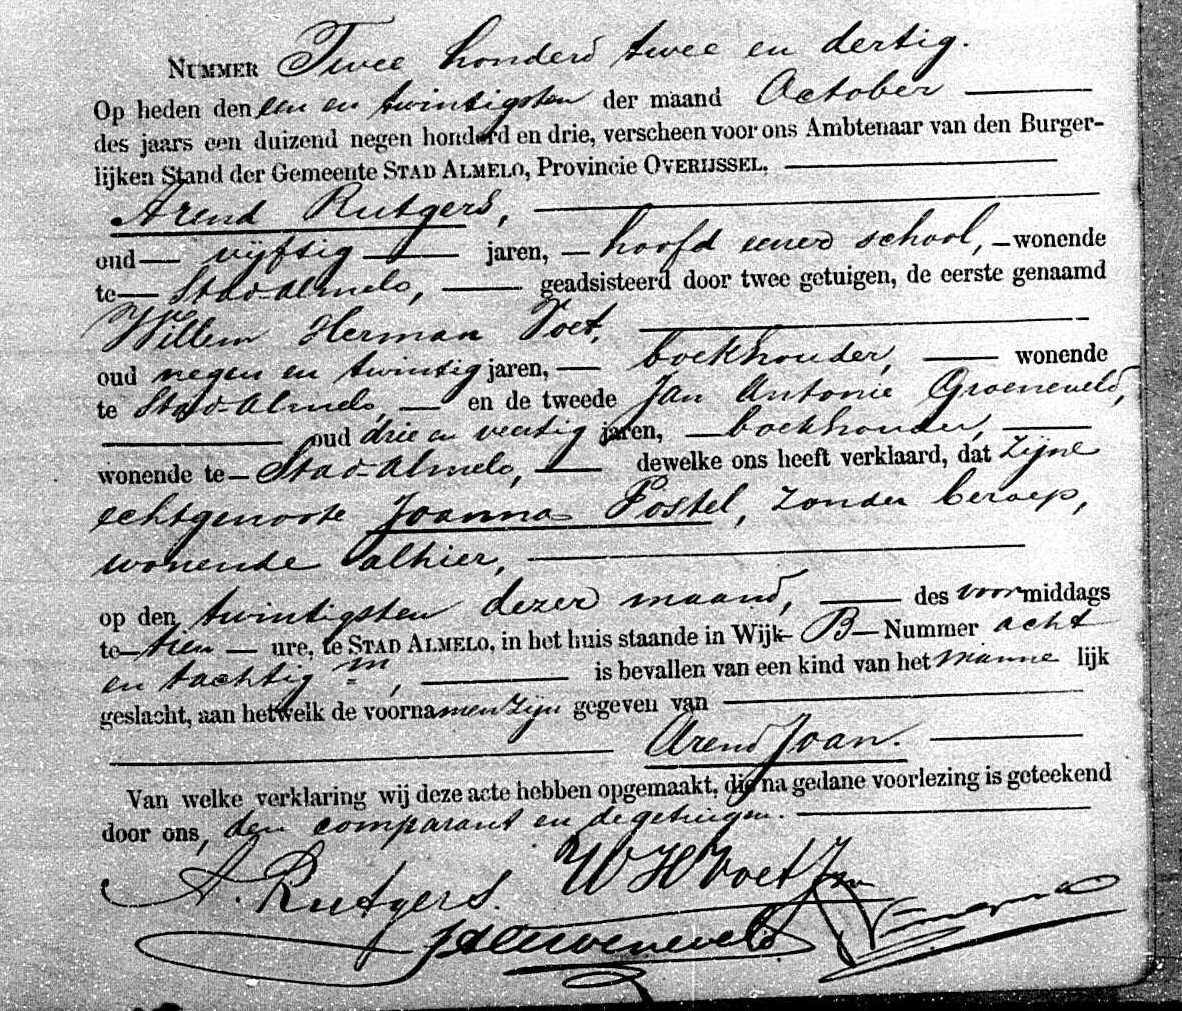 NUMMER Twee honderd twee en dertig.
Op heden den een en twintigsten der maand October
des jaars een duizend negen honderd en drie, verscheen voor ons Ambtenaar van den Burger-
lijken Stand der Gemeente STAD ALMELO, Provincie OVERIJSSEL,
Arend Rutgers,
oud — vijftig — jaren, — hoofd eener school, — wonende
te — Stad-Almelo, — geadsisteerd door twee getuigen, de eerste genaamd
Willem Herman Voet,
oud negen en twintig jaren, — boekhouder, — wonende
te Stad-Almelo, — en de tweede Jan Antonie Groeneveld,
— oud drie en veertig jaren, — boekhouder, —
wonende te — Stad-Almelo, — dewelke ons heeft verklaard, dat zijne
echtgenoote Joanna Postel, zonder beroep,
wonende alhier,
op den twintigsten dezer maand, — des voormiddags
te — tien — ure, te STAD ALMELO, in het huis staande in Wijk — B — Nummer acht
en tachtig m, — is bevallen van een kind van het mannelijk
geslacht, aan hetwelk de voornamen zijn gegeven van —
— Arend Joan. —
Van welke verklaring wij deze acte hebben opgemaakt, die na gedane voorlezing is geteekend
door ons, den comparant en de getuigen. —
A. Rutgers. W H Voet Jzn
JAGroeneveld